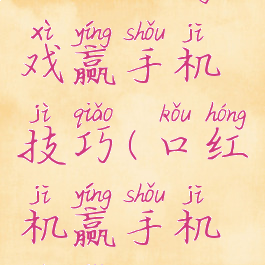 xì yíng shǒu jī
戏赢手机
jì qiǎo kǒu hóng
技巧(口红
jī yíng shǒu jī
机赢手机